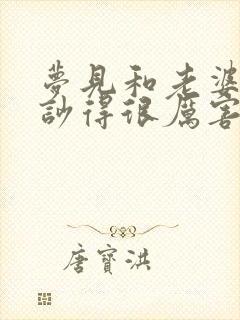 夢見和老婆
訬得很厲害
唐寶洪